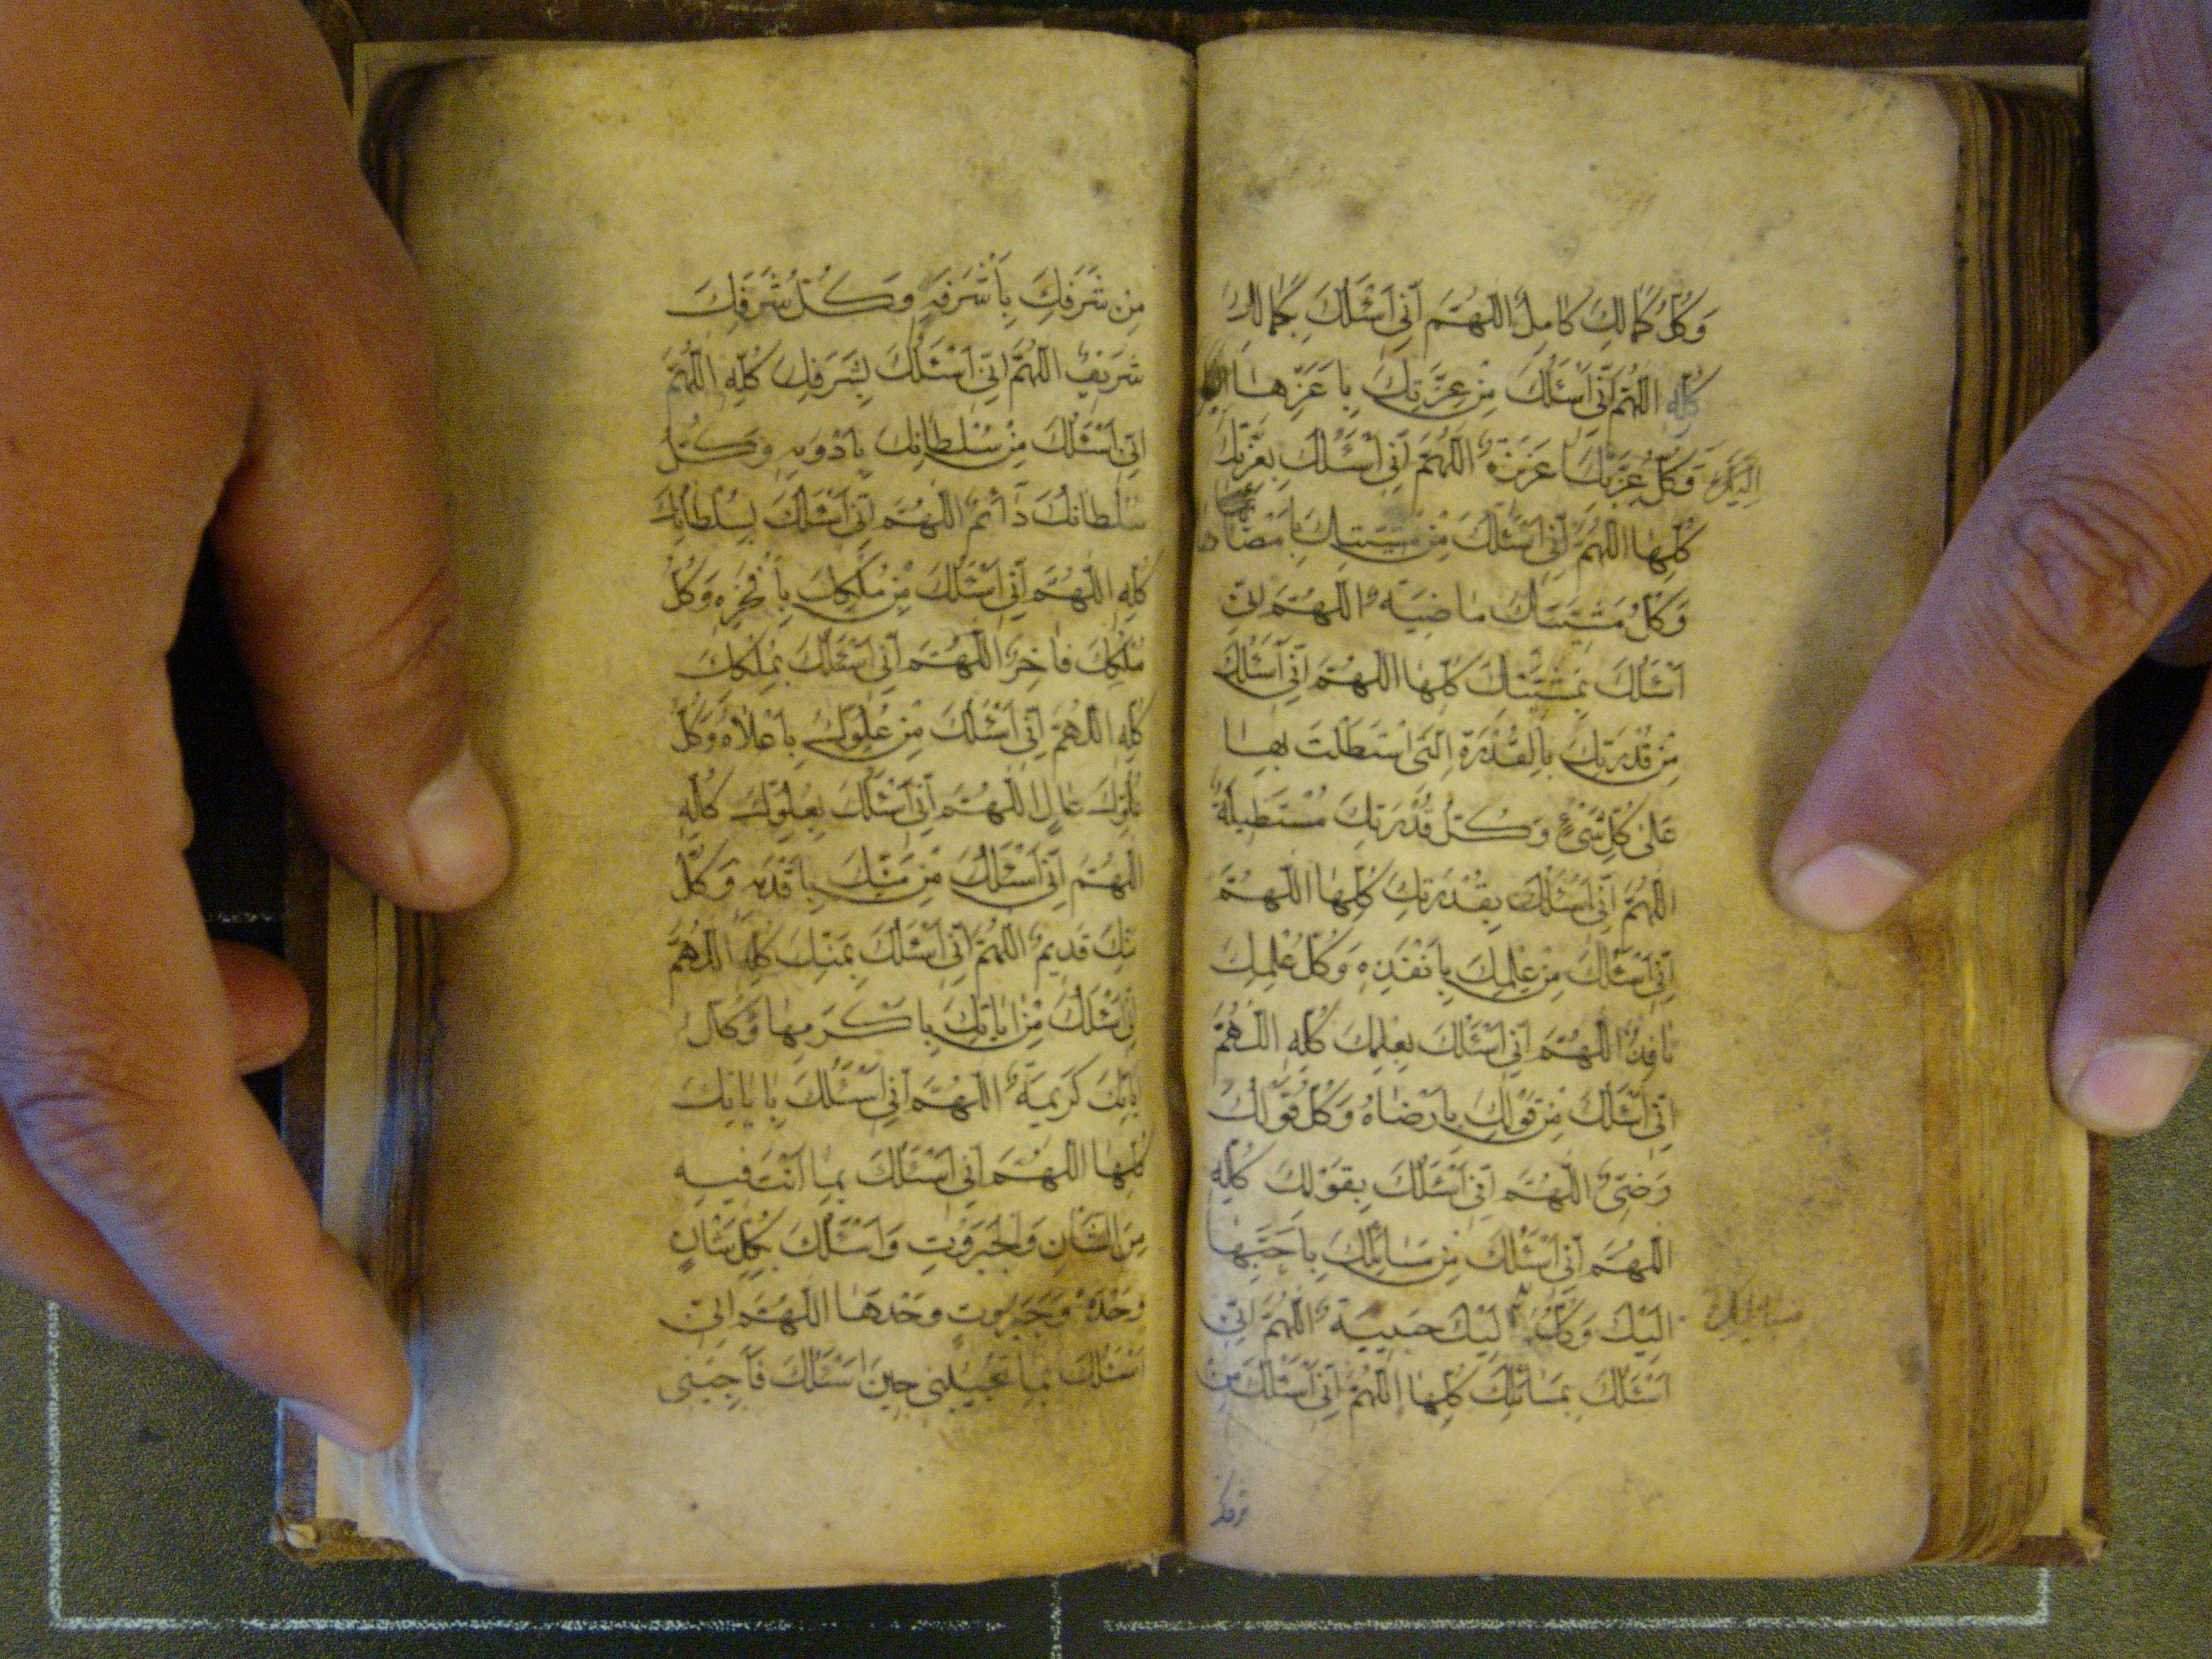 وَكُلُّ كَمَالِكَ كَامِلٌ اَللّٰهُمَّ اِنّٖى اَسْئَلُكَ بِكَمَالِكَ
كُلِّهِ اَللّٰهُمَّ اِنّٖى اَسْئَلُكَ مِنْ عِزَّتِكَ بِاَعَزِّهَا
وَكُلُّ عِزَّتِكَ عَزِيزَةٌ اَللّٰهُمَّ اِنّٖى اَسْئَلُكَ بِعِزَّتِكَ
كُلِّهَا اَللّٰهُمَّ اِنّٖى اَسْئَلُكَ مِنْ مَشِيَّتِكَ بِاَمْضَاهَا
وَكُلُّ مَشِيَّتِكَ مَاضِيَةٌ اَللّٰهُمَّ اِنّٖى
اَسْئَلُكَ بِمَشِيَّتِكَ كُلِّهَا اَللّٰهُمَّ اِنّٖى اَسْئَلُكَ
مِنْ قُدْرَتِكَ بِالْقُدْرَةِ الَّتِى اسْتَطَلْتَ بِهَا
عَلٰى كُلِّ شَىْءٍ وَكُلُّ قُدْرَتِكَ مُسْتَطِيلَةٌ
اَللّٰهُمَّ اِنّٖى اَسْئَلُكَ بِقُدْرَتِكَ كُلِّهَا اَللّٰهُمَّ
اِنّٖى اَسْئَلُكَ مِنْ عِلْمِكَ بِاَنْفَذِهِ وَكُلُّ عِلْمِكَ
نَافِذٌ اَللّٰهُمَّ اِنّٖى اَسْئَلُكَ بِعِلْمِكَ كُلِّهِ اَللّٰهُمَّ
اِنّٖى اَسْئَلُكَ مِنْ قَوْلِكَ بِاَرْضَاهُ وَكُلُّ قَوْلِكَ
رَضِىٌّ اَللّٰهُمَّ اِنّٖى اَسْئَلُكَ بِقَوْلِكَ كُلِّهِ
اَللّٰهُمَّ اِنّٖى اَسْئَلُكَ مِنْ مَسَائِلِكَ بِاَحَبِّهَا
اِلَيْكَ وَكُلُّ اِلَيْكَ حَبِيبَةٌ اَللّٰهُمَّ اِنّٖى
اَسْئَلُكَ بِمَسَائِلِكَ كُلِّهَا اَللّٰهُمَّ اِنّٖى اَسْئَلُكَ مِنْ
مِنْ شَرَفِكَ بِاَشْرَفِهِ وَكُلُّ شَرَفِكَ
شَرِيفٌ اَللّٰهُمَّ اِنّٖى اَسْئَلُكَ بِشَرَفِكَ كُلِّهِ اَللّٰهُمَّ
اِنّٖى اَسْئَلُكَ مِنْ سُلْطَانِكَ بِاَدْوَمِهِ وَكُلُّ
سُلْطَانِكَ دَائِمٌ اَللّٰهُمَّ اِنّٖى اَسْئَلُكَ بِسُلْطَانِكَ
كُلِّهِ اَللّٰهُمَّ اِنّٖى اَسْئَلُكَ مِنْ مُلْكِكَ بِاَفْخَرِهِ وَكُلُّ
مُلْكِكَ فَاخِرٌ اَللّٰهُمَّ اِنّٖى اَسْئَلُكَ بِمُلْكِكَ
كُلِّهِ اَللّٰهُمَّ اِنّٖى اَسْئَلُكَ مِنْ عُلُوِّكَ بِاَعْلَاهُ وَكُلُّ
عُلُوِّكَ عَالٍ اَللّٰهُمَّ اِنّٖى اَسْئَلُكَ بِعُلُوِّكَ كُلِّهِ
اَللّٰهُمَّ اِنّٖى اَسْئَلُكَ مِنْ مَنِّكَ بِاَقْدَمِهِ وَكُلُّ
مَنِّكَ قَدِيمٌ اَللّٰهُمَّ اِنّٖى اَسْئَلُكَ بِمَنِّكَ كُلِّهِ اَللّٰهُمَّ
اِنّٖى اَسْئَلُكَ مِنْ اٰيَاتِكَ بِاَكْرَمِهَا وَكُلُّ
اٰيَاتِكَ كَرِيمَةٌ اَللّٰهُمَّ اِنّٖى اَسْئَلُكَ بِاٰيَاتِكَ
كُلِّهَا اَللّٰهُمَّ اِنّٖى اَسْئَلُكَ بِمَا اَنْتَ فِيهِ
مِنَ الشَّأْنِ وَالْجَبَرُوتِ وَاَسْئَلُكَ بِكُلِّ شَأْنٍ
وَحْدَهُ وَجَبَرُوتٍ وَحْدَهَا اَللّٰهُمَّ اِنّٖى
اَسْئَلُكَ بِمَا تُجِيبُنِى حِينَ اَسْئَلُكَ فَاَجِبْنِى